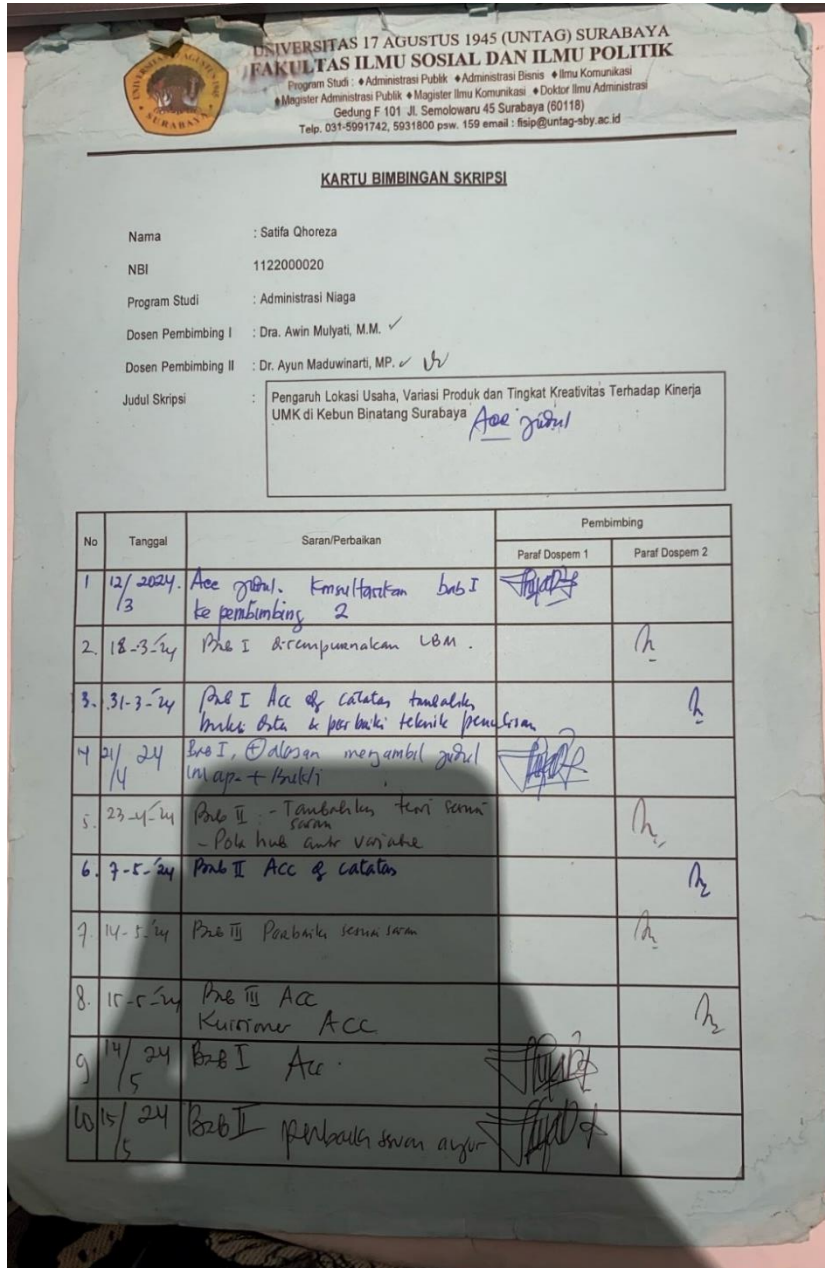 UNIVERSITAS 17 AGUSTUS 1945 (UNTAG) SURABAYA
FAKULTAS ILMU SOSIAL DAN ILMU POLITIK
Program Studi : ♦Administrasi Publik ♦Administrasi Bisnis ♦Ilmu Komunikasi
♦Magister Administrasi Publik ♦Magister Ilmu Komunikasi ♦Doktor Ilmu Administrasi
Gedung F 101 Jl. Semolowaru 45 Surabaya (60118)
Telp. 031-5991742, 5931800 psw. 159 email : fisip@untag-sby.ac.id
KARTU BIMBINGAN SKRIPSI
Nama : Satifa Qhoreza
NBI 1122000020
Program Studi : Administrasi Niaga
Dosen Pembimbing I : Dra. Awin Mulyati, M.M. ✓
Dosen Pembimbing II : Dr. Ayun Maduwinarti, MP. ✓
Judul Skripsi : Pengaruh Lokasi Usaha, Variasi Produk dan Tingkat Kreativitas Terhadap Kinerja
UMK di Kebun Binatang Surabaya Acc judul
No Tanggal Saran/Perbaikan Pembimbing
Paraf Dospem 1 Paraf Dospem 2
1 12/3 2024. Acc judul. Konsultasikan bab I
ke pembimbing 2
2. 18-3-'24 Bab I disempurnakan LBM.
3. 31-3-'24 Bab I Acc dg catatan tambahkan
bukti data & perbaiki teknik penulisan
4 21/4 24 Bab I, + alasan mengambil judul
+ Bukti
5. 23-4-'24 Bab II - Tambahkan teori sesuai
saran
- Pola hub antr variabel
6. 7-5-'24 Bab II Acc dg catatan
7. 14-5-'24 Bab III Perbaiki sesuai saran
8. 15-5-'24 Bab III ACC
Kuisioner ACC
9 14/5 24 Bab I Acc.
10 15/5 24 Bab II perbaiki